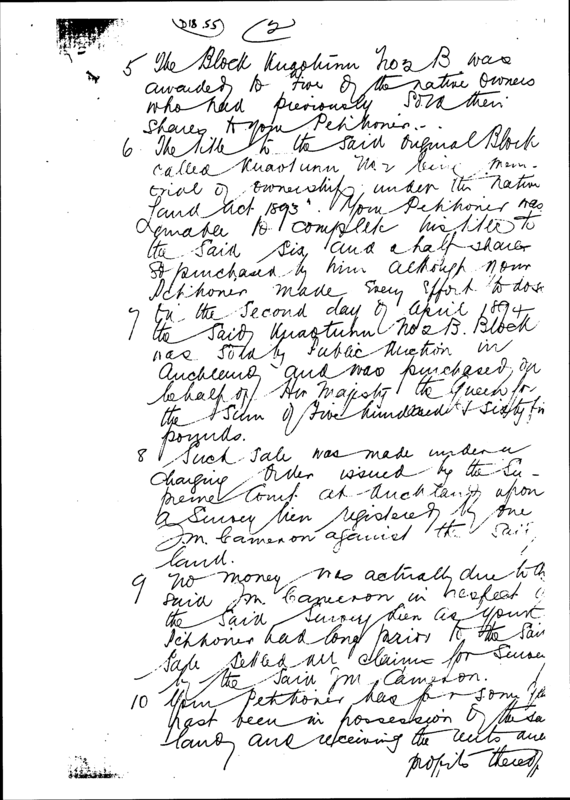 D18.55 2
5 The Block Kuaotunu No 2 B was
awarded to Five of the native owners
who had previously sold their
shares to your Petitioner.
6 The title to the said original Block
called Kuaotunu No 2 being mem-
orial of ownership under the Native
Land Act 1893". Your Petitioner was
unable to complete his title to
the said six and a half shares
so purchased by him although your
Petitioner made every effort to do so
7 On the Second day of April 1894
the said Kuaotunu No 2 B. Block
was sold by Public Auction in
Auckland and was purchased on
behalf of Her Majesty the Queen for
the Sum of Five hundred & sixty
pounds.
8 Such sale was made under a
charging Order issued by the Su-
preme Court at Auckland upon
a Survey lien registered by one
J.M. Cameron against the said
land.
9 No money was actually due to th
said J.M. Cameron in respect o
the said Survey Lien as your
Petitioner had long prior to the said
Sale settled all claims for Survey
by the said J.M. Cameron.
10 Your Petitioner has for some
past been in possession of the sa
land and receiving the rents and
profits thereof